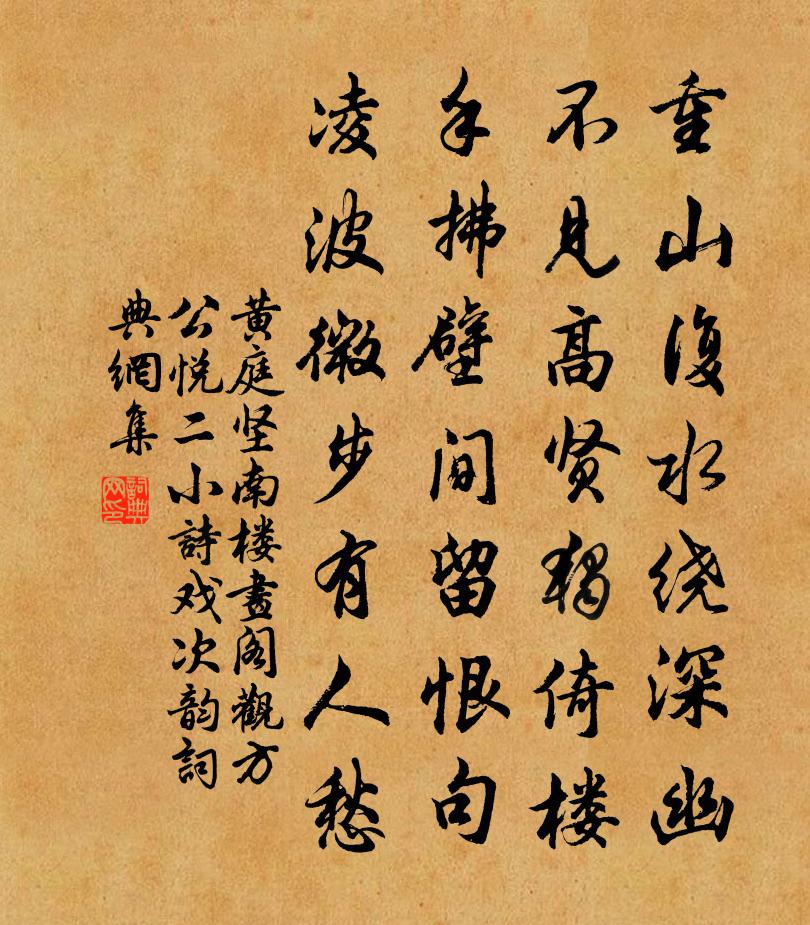 重山復水绕深幽
不見高贤獨倚楼
手拂壁间留恨句
凌波微步有人愁
黄庭坚南楼畫阁觀方
公悦二小詩戏次韵詞
典網集
詞典网印